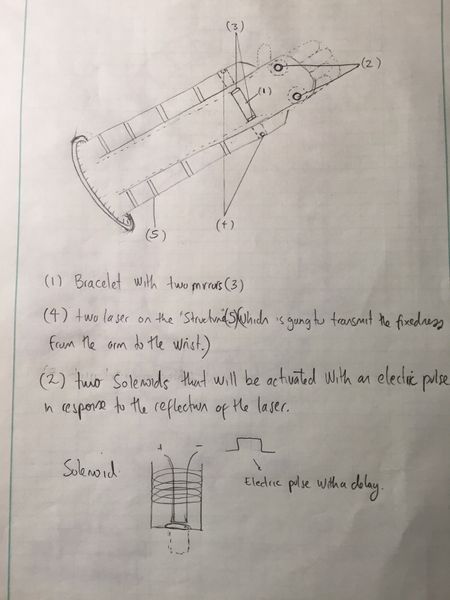 (3)
(2)
(1)
(4)
(5)
(1) Bracelet with two mirrors (3)
(4) two laser on the "Structure(5)(Which is going to transmit the fixedness
from the arm to the wrist.)
(2) two Solenoids that will be activated with an electric pulse
in response to the reflection of the laser.
Solenoid
+ -
Electric pulse with a delay.